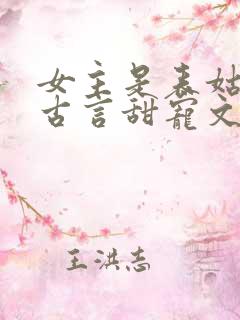 女主是表姑
古言甜宠文
王洪志